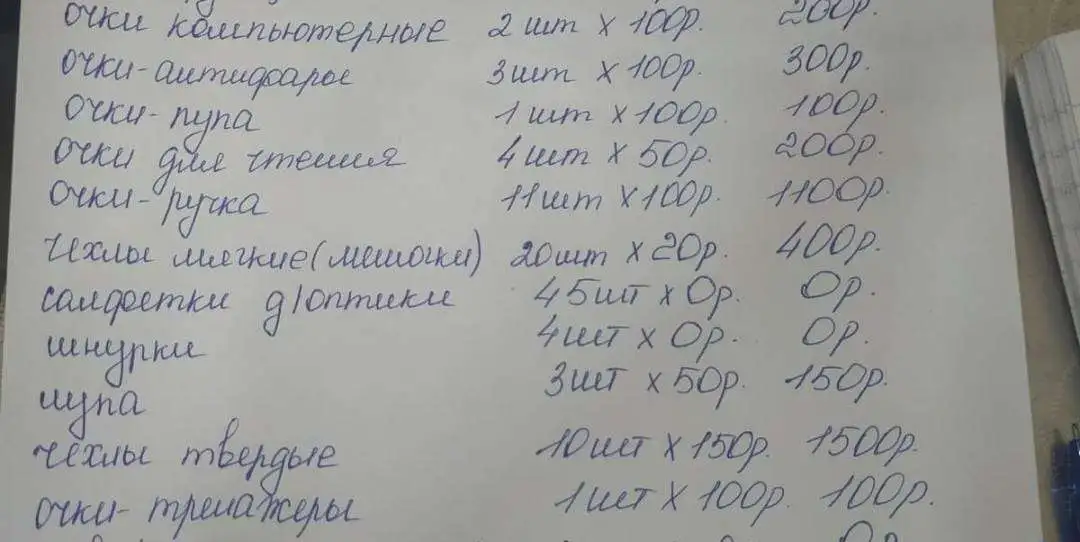 очки компьютерные 2 шт х 100р. 200р.
очки-антифары 3шт х 100р. 300р.
очки-лупа 1 шт х 100р. 100р.
очки для чтения 4 шт х 50р. 200р.
очки-ручка 11 шт х 100р. 1100р.
чехлы мягкие (мешочки) 20шт х 20р. 400р.
салфетки д/оптики 45шт х 0р. 0р.
шнурки 4шт х 0р. 0р.
лупа 3шт х 50р. 150р.
чехлы твердые 10шт х 150р. 1500р.
очки-тренажеры 1 шт х 100р. 100р.